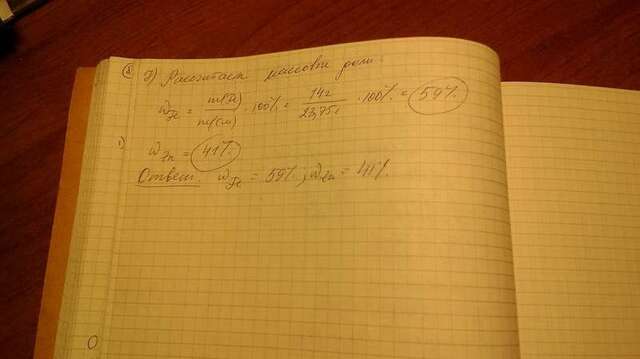 д) Рассчитаем массовые доли:
ω Fe = m(Fe) / m(см) · 100% = 14г / 23,75г · 100% = 59%
ω Zn = 41%
Ответ: ω Fe = 59%, ω Zn = 41%.